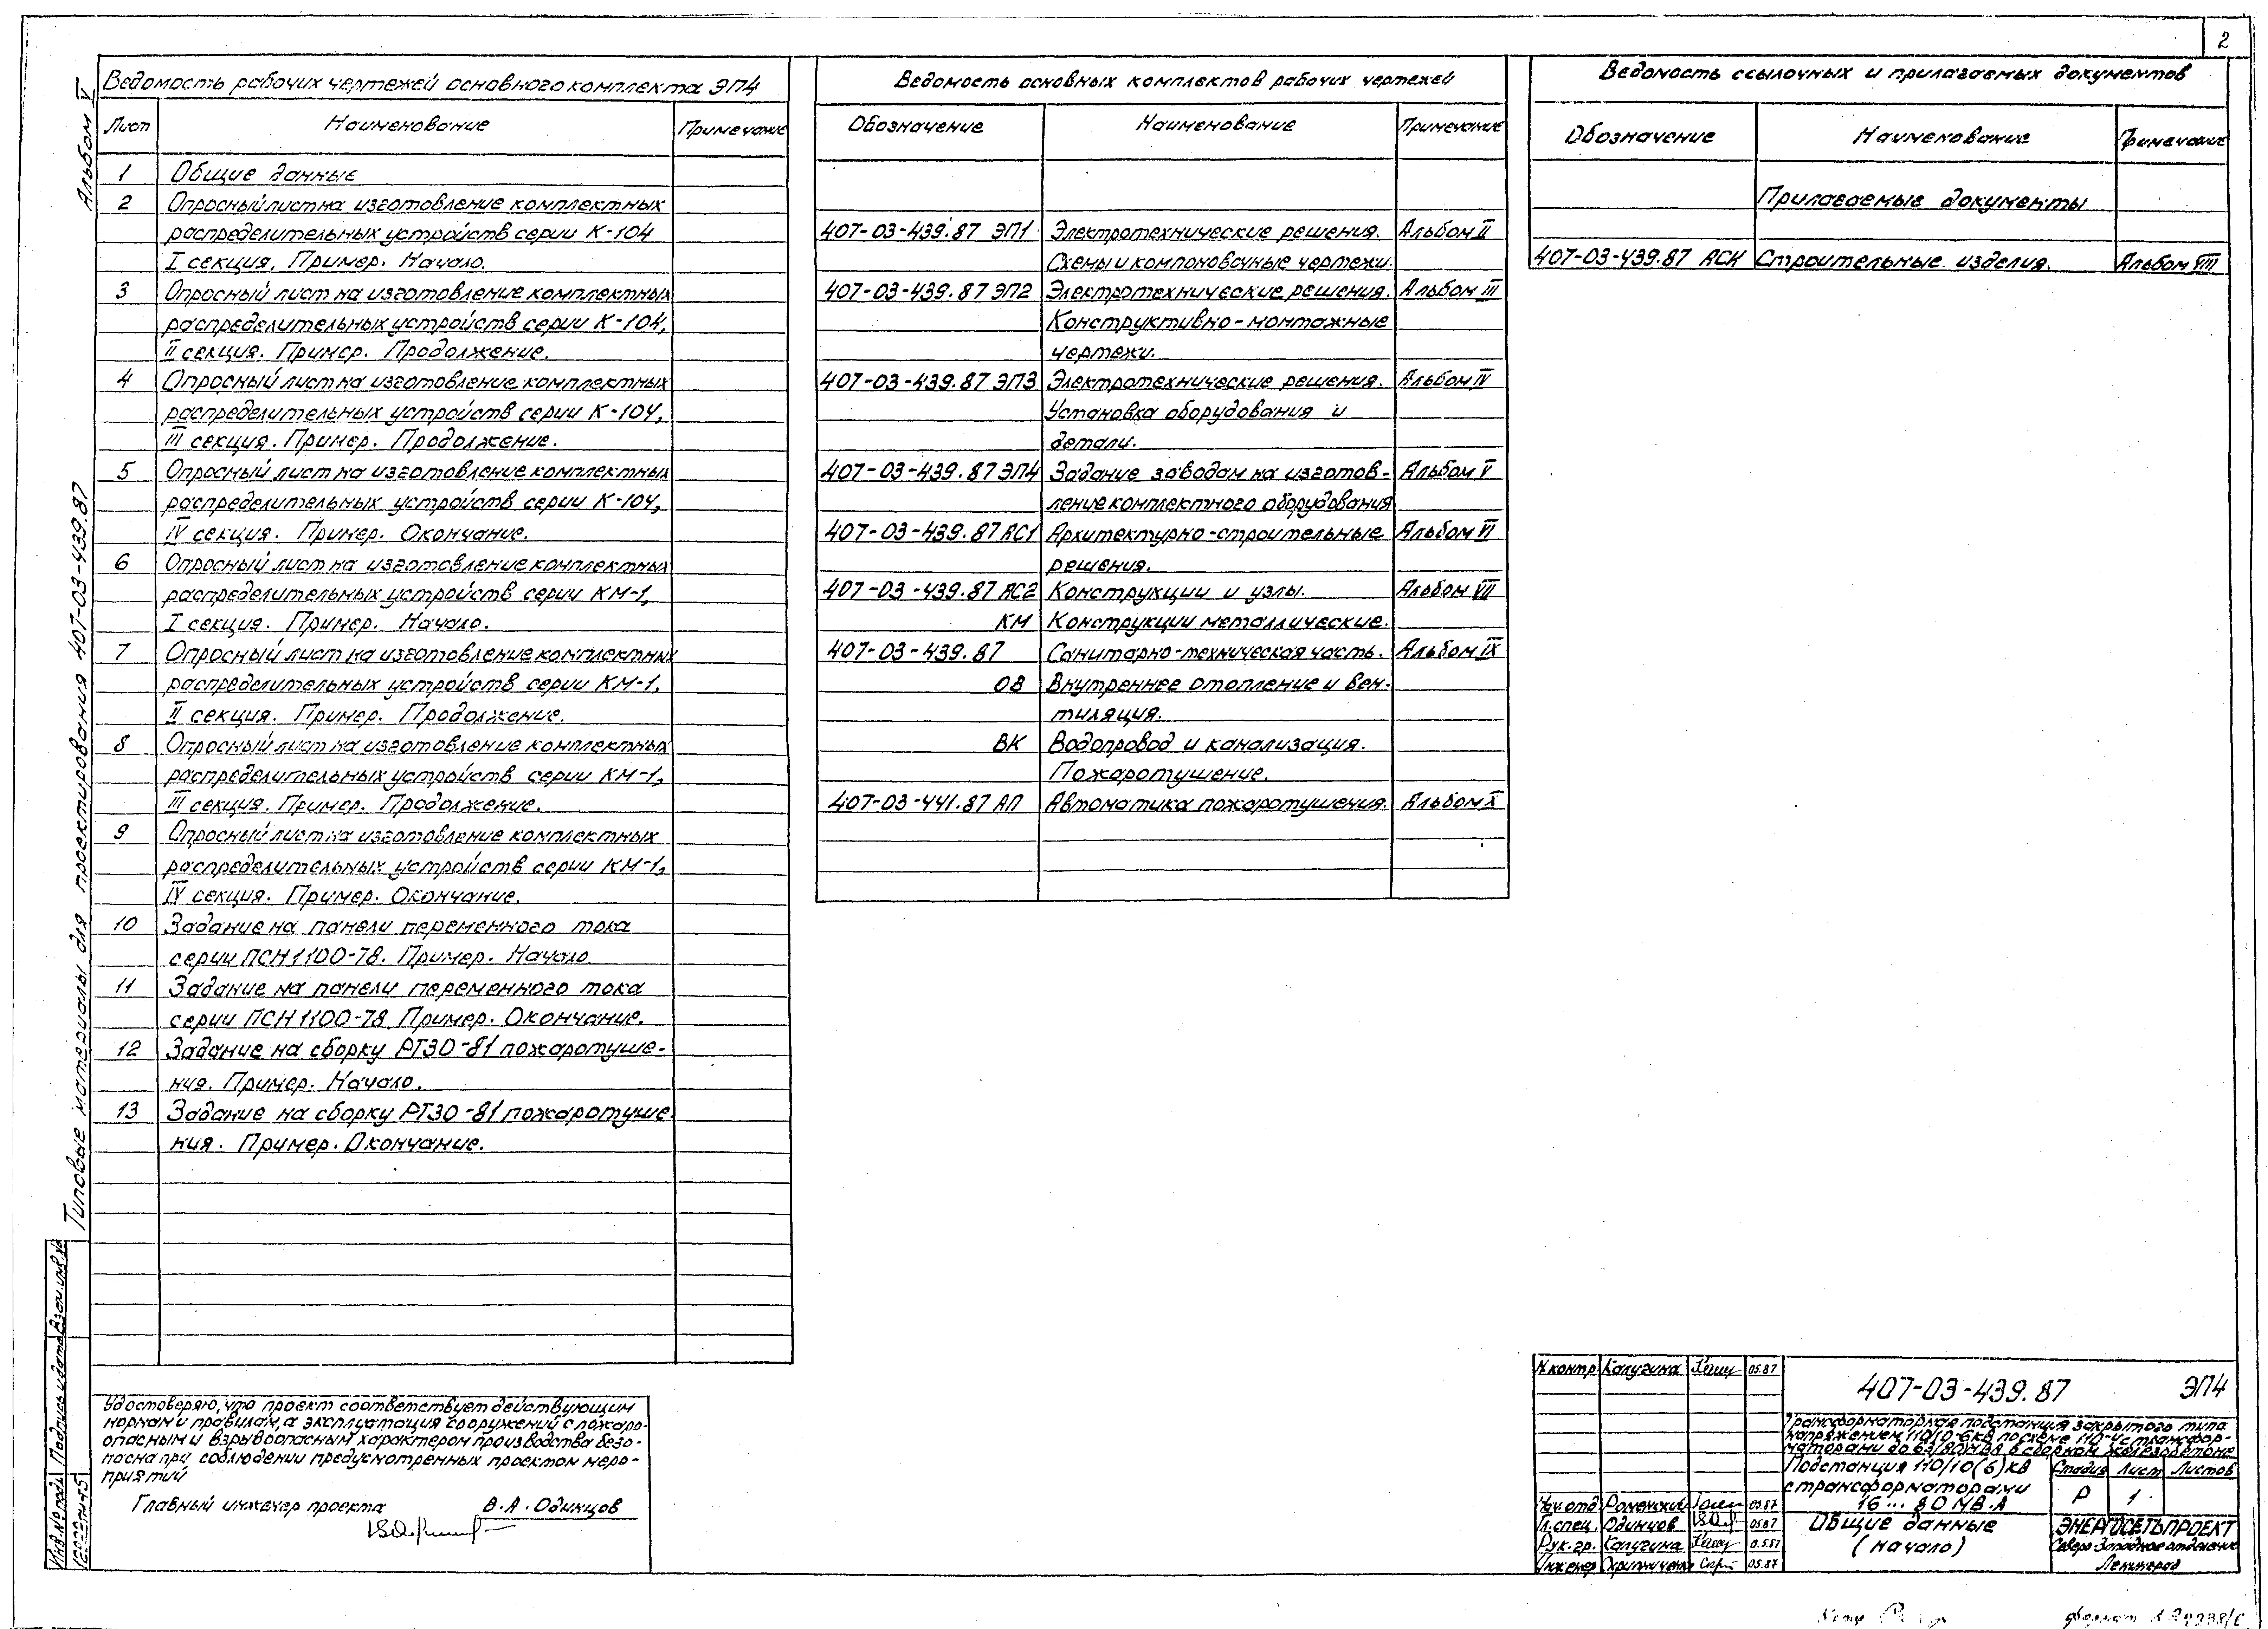 2
Альбом V
Типовые материалы для проектирования 407-03-439.87
Ведомость рабочих чертежей основного комплекта ЭП4
Лист Наименование Примечание
1 Общие данные
2 Опросный лист на изготовление комплектных
распределительных устройств серии К-104
I секция. Пример. Начало.
3 Опросный лист на изготовление комплектных
распределительных устройств серии К-104,
II секция. Пример. Продолжение.
4 Опросный лист на изготовление комплектных
распределительных устройств серии К-104,
III секция. Пример. Продолжение.
5 Опросный лист на изготовление комплектных
распределительных устройств серии К-104,
IV секция. Пример. Окончание.
6 Опросный лист на изготовление комплектных
распределительных устройств серии КМ-1,
I секция. Пример. Начало.
7 Опросный лист на изготовление комплектных
распределительных устройств серии КМ-1,
II секция. Пример. Продолжение.
8 Опросный лист на изготовление комплектных
распределительных устройств серии КМ-1,
III секция. Пример. Продолжение.
9 Опросный лист на изготовление комплектных
распределительных устройств серии КМ-1,
IV секция. Пример. Окончание.
10 Задание на панели переменного тока
серии ПСН1100-78. Пример. Начало.
11 Задание на панели переменного тока
серии ПСН1100-78. Пример. Окончание.
12 Задание на сборку РТ30-81 пожаротуше-
ния. Пример. Начало.
13 Задание на сборку РТ30-81 пожаротуше-
ния. Пример. Окончание.
Ведомость основных комплектов рабочих чертежей
Обозначение Наименование Примечание
407-03-439.87 ЭП1 Электротехнические решения. Альбом II
Схемы и компоновочные чертежи.
407-03-439.87 ЭП2 Электротехнические решения. Альбом III
Конструктивно-монтажные
чертежи.
407-03-439.87 ЭП3 Электротехнические решения. Альбом IV
Установка оборудования и
детали.
407-03-439.87 ЭП4 Задание заводам на изготов- Альбом V
ление комплектного оборудования
407-03-439.87 АС1 Архитектурно-строительные Альбом VI
решения.
407-03-439.87 АС2 Конструкции и узлы. Альбом VII
КМ Конструкции металлические.
407-03-439.87 Санитарно-техническая часть. Альбом IX
ОВ Внутреннее отопление и вен-
тиляция.
ВК Водопровод и канализация.
Пожаротушение.
407-03-441.87 АП Автоматика пожаротушения. Альбом X
Ведомость ссылочных и прилагаемых документов
Обозначение Наименование Примечание
Прилагаемые документы
407-03-439.87 АСИ Строительные изделия. Альбом VIII
Удостоверяю, что проект соответствует действующим
нормам и правилам, а эксплуатация сооружений с пожаро-
опасным и взрывоопасным характером производства безо-
пасна при соблюдении предусмотренных проектом меро-
приятий
Главный инженер проекта В.А. Одинцов
Инв.№ подл. Подпись и дата Взам. инв.№
Н.контр. Калугина 05.87
Нач.отд. Роменский 05.87
Гл.спец. Одинцов 05.87
Рук.гр. Калугина 05.87
Инженер 05.87
407-03-439.87 ЭП4
Трансформаторная подстанция закрытого типа
напряжением 110/10-6кВ по схеме 110-4 с трансфор-
маторами до 63/80МВА в сборном железобетоне
Подстанция 110/10(6)кВ
с трансформаторами
16...80 МВ.А
Стадия Лист Листов
Р 1
Общие данные
(начало)
ЭНЕРГОСЕТЬПРОЕКТ
Северо-Западное отделение
Ленинград
формат